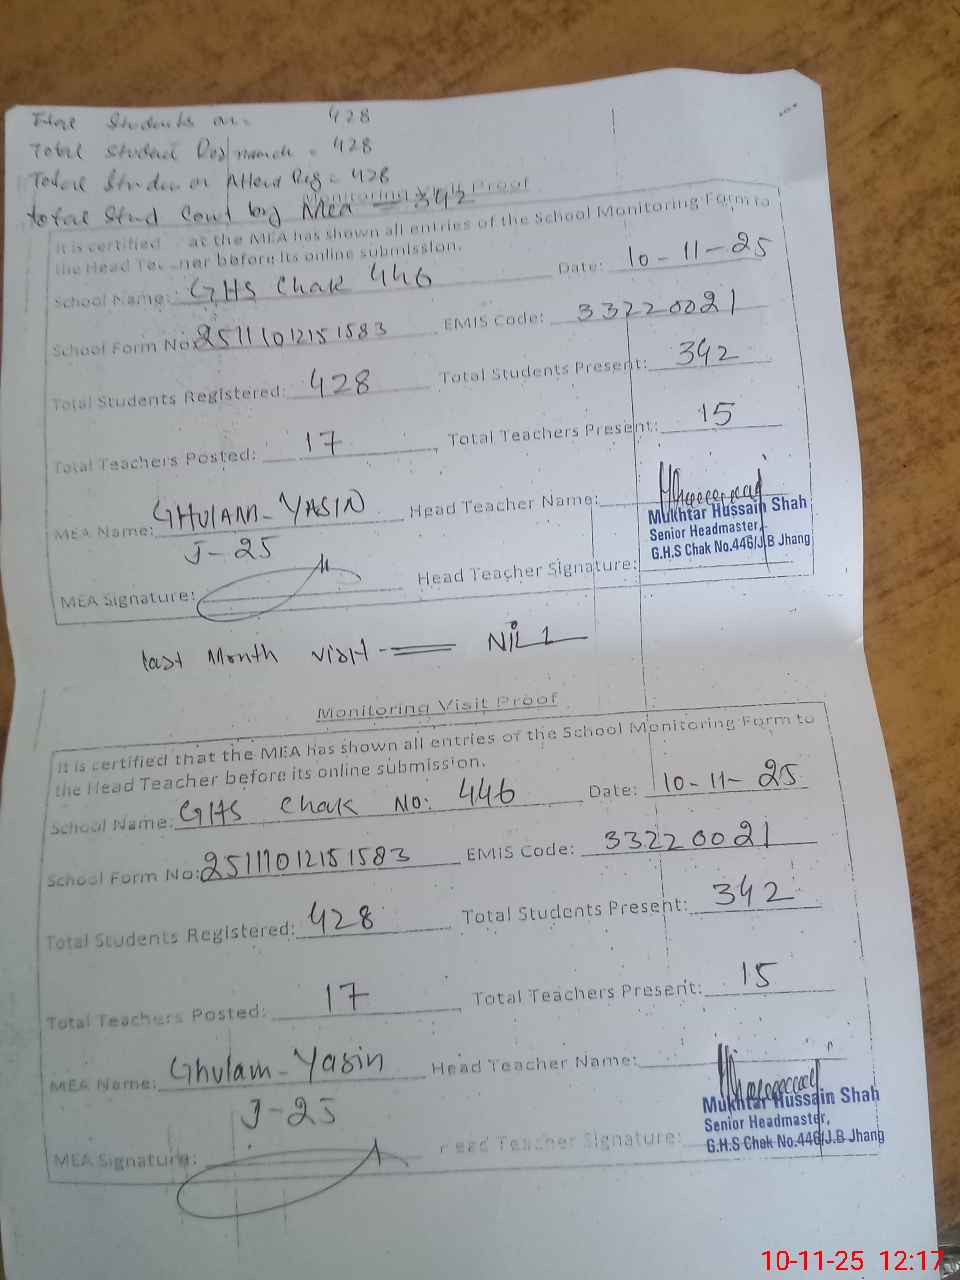 Total Students on 428
Total Student 428
Total Student on Attend Reg = 428
Monitoring Visit Proof
total Stud Count by Mea = 342
It is certified at the MEA has shown all entries of the School Monitoring Form to
the Head Teacher before its online submission.
School Name: GHS Chak 446 Date: 10-11-25
School Form No: 25111012151583 EMIS Code: 33220021
Total Students Registered: 428 Total Students Present: 342
Total Teachers Posted: 17 Total Teachers Present: 15
MEA Name: GHULAM-YASIN Head Teacher Name:
J-25
Mukhtar Hussain Shah
Senior Headmaster,
G.H.S Chak No.446/J.B Jhang
MEA Signature: Head Teacher Signature:
last Month visit = NIL
Monitoring Visit Proof
It is certified that the MEA has shown all entries of the School Monitoring Form to
the Head Teacher before its online submission.
School Name: GHS Chak No: 446 Date: 10-11-25
School Form No: 25111012151583 EMIS Code: 33220021
Total Students Registered: 428 Total Students Present: 342
Total Teachers Posted: 17 Total Teachers Present: 15
MEA Name: Ghulam-Yasin Head Teacher Name:
J-25
Mukhtar Hussain Shah
Senior Headmaster,
G.H.S Chak No.446/J.B Jhang
MEA Signature: Head Teacher Signature:
10-11-25 12:17